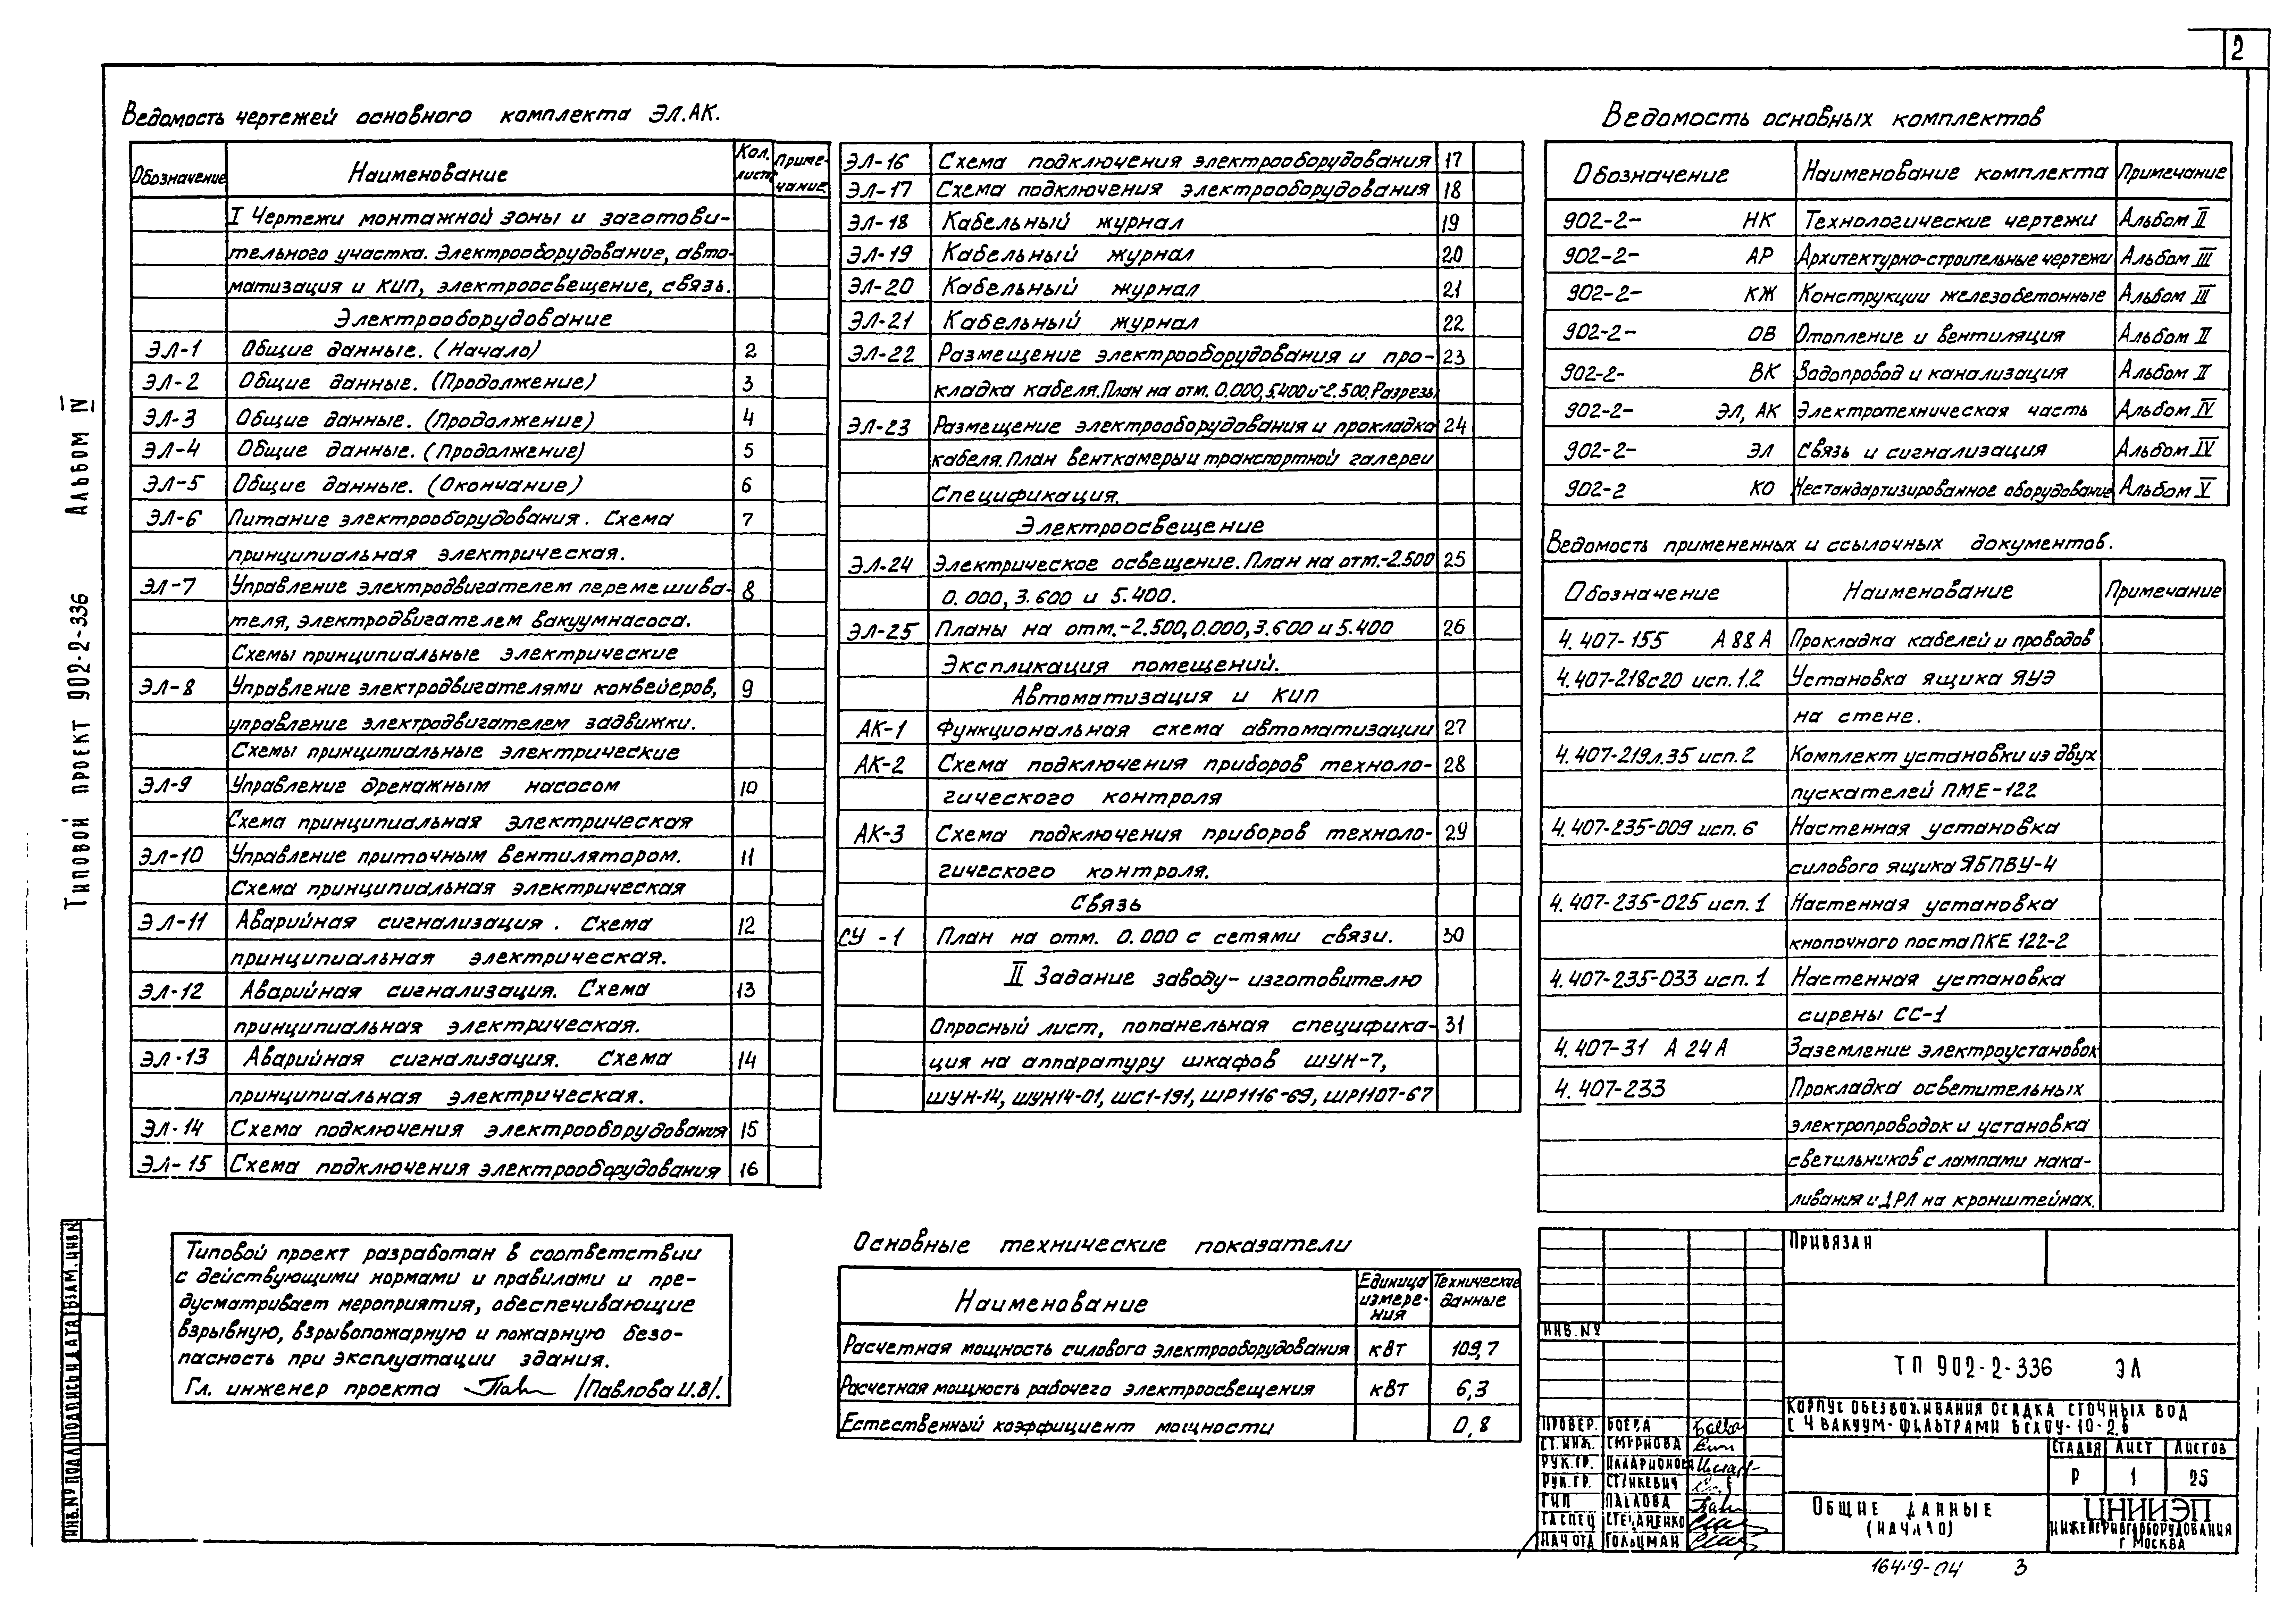 2
Ведомость чертежей основного комплекта ЭЛ.АК.
Обозначение Наименование Кол. лист. Приме-чание
I Чертежи монтажной зоны и заготови-
тельного участка. Электрооборудование, авто-
матизация и КИП, электроосвещение, связь.
Электрооборудование
ЭЛ-1 Общие данные. (Начало) 2
ЭЛ-2 Общие данные. (Продолжение) 3
ЭЛ-3 Общие данные. (Продолжение) 4
ЭЛ-4 Общие данные. (Продолжение) 5
ЭЛ-5 Общие данные. (Окончание) 6
ЭЛ-6 Питание электрооборудования. Схема 7
принципиальная электрическая.
ЭЛ-7 Управление электродвигателем перемешива- 8
теля, электродвигателем вакуумнасоса.
Схемы принципиальные электрические
ЭЛ-8 Управление электродвигателями конвейеров, 9
управление электродвигателем задвижки.
Схемы принципиальные электрические
ЭЛ-9 Управление дренажным насосом 10
Схема принципиальная электрическая
ЭЛ-10 Управление приточным вентилятором. 11
Схема принципиальная электрическая
ЭЛ-11 Аварийная сигнализация. Схема 12
принципиальная электрическая.
ЭЛ-12 Аварийная сигнализация. Схема 13
принципиальная электрическая.
ЭЛ-13 Аварийная сигнализация. Схема 14
принципиальная электрическая.
ЭЛ-14 Схема подключения электрооборудования 15
ЭЛ-15 Схема подключения электрооборудования 16
ЭЛ-16 Схема подключения электрооборудования 17
ЭЛ-17 Схема подключения электрооборудования 18
ЭЛ-18 Кабельный журнал 19
ЭЛ-19 Кабельный журнал 20
ЭЛ-20 Кабельный журнал 21
ЭЛ-21 Кабельный журнал 22
ЭЛ-22 Размещение электрооборудования и про- 23
кладка кабеля. План на отм. 0.000, 5.400 и -2.500. Разрезы
ЭЛ-23 Размещение электрооборудования и прокладка 24
кабеля. План венткамеры и транспортной галереи
Спецификация.
Электроосвещение
ЭЛ-24 Электрическое освещение. План на отм. -2.500 25
0.000, 3.600 и 5.400.
ЭЛ-25 Планы на отм. -2.500, 0.000, 3.600 и 5.400 26
Экспликация помещений.
Автоматизация и КИП
АК-1 Функциональная схема автоматизации 27
АК-2 Схема подключения приборов техноло- 28
гического контроля
АК-3 Схема подключения приборов техноло- 29
гического контроля.
Связь
СУ-1 План на отм. 0.000 с сетями связи. 30
II Задание заводу-изготовителю
Опросный лист, попанельная специфика- 31
ция на аппаратуру шкафов ШУН-7,
ШУН-14, ШУН14-01, ШС1-191, ШР1116-69, ШР1107-67
Ведомость основных комплектов
Обозначение Наименование комплекта Примечание
902-2- НК Технологические чертежи Альбом II
902-2- АР Архитектурно-строительные чертежи Альбом III
902-2- КЖ Конструкции железобетонные Альбом III
902-2- ОВ Отопление и вентиляция Альбом II
902-2- ВК Водопровод и канализация Альбом II
902-2- ЭЛ, АК Электротехническая часть Альбом IV
902-2- ЭЛ Связь и сигнализация Альбом IV
902-2 КО Нестандартизированное оборудование Альбом V
Ведомость примененных и ссылочных документов.
Обозначение Наименование Примечание
4.407-155 А88А Прокладка кабелей и проводов
4.407-218с20 исп.1.2 Установка ящика ЯУЭ
на стене.
4.407-219л.35 исп.2 Комплект установки из двух
пускателей ПМЕ-122
4.407-235-009 исп.6 Настенная установка
силового ящика ЯБПВУ-4
4.407-235-025 исп.1 Настенная установка
кнопочного поста ПКЕ 122-2
4.407-235-033 исп.1 Настенная установка
сирены СС-1
4.407-31 А24А Заземление электроустановок
4.407-233 Прокладка осветительных
электропроводок и установка
светильников с лампами нака-
ливания и ДРЛ на кронштейнах.
Типовой проект разработан в соответствии
с действующими нормами и правилами и пре-
дусматривает мероприятия, обеспечивающие
взрывную, взрывопожарную и пожарную безо-
пасность при эксплуатации здания.
Гл. инженер проекта /Павлова И.В/.
Основные технические показатели
Наименование Единица измере-ния Технические данные
Расчетная мощность силового электрооборудования кВт 109,7
Расчетная мощность рабочего электроосвещения кВт 6,3
Естественный коэффициент мощности 0,8
Привязан
ИНВ.№
ТП 902-2-336 ЭЛ
Корпус обезвоживания осадка сточных вод
с 4 вакуум-фильтрами БсхОУ-10-2.6
Провер. Боева
Ст.инж. Смирнова
Рук.гр. Илларионова
Рук.гр. Стинкевич
ГИП Павлова
Гл.спец Степаненко
Нач отд Гольцман
Стадия Лист Листов
Р 1 25
Общие данные
(начало)
ЦНИИЭП
инженерного оборудования
г Москва
3
Типовой проект 902-2-336 Альбом IV
ИНВ.№ ПОДЛ ПОДПИСЬ И ДАТА ВЗАМ.ИНВ.№